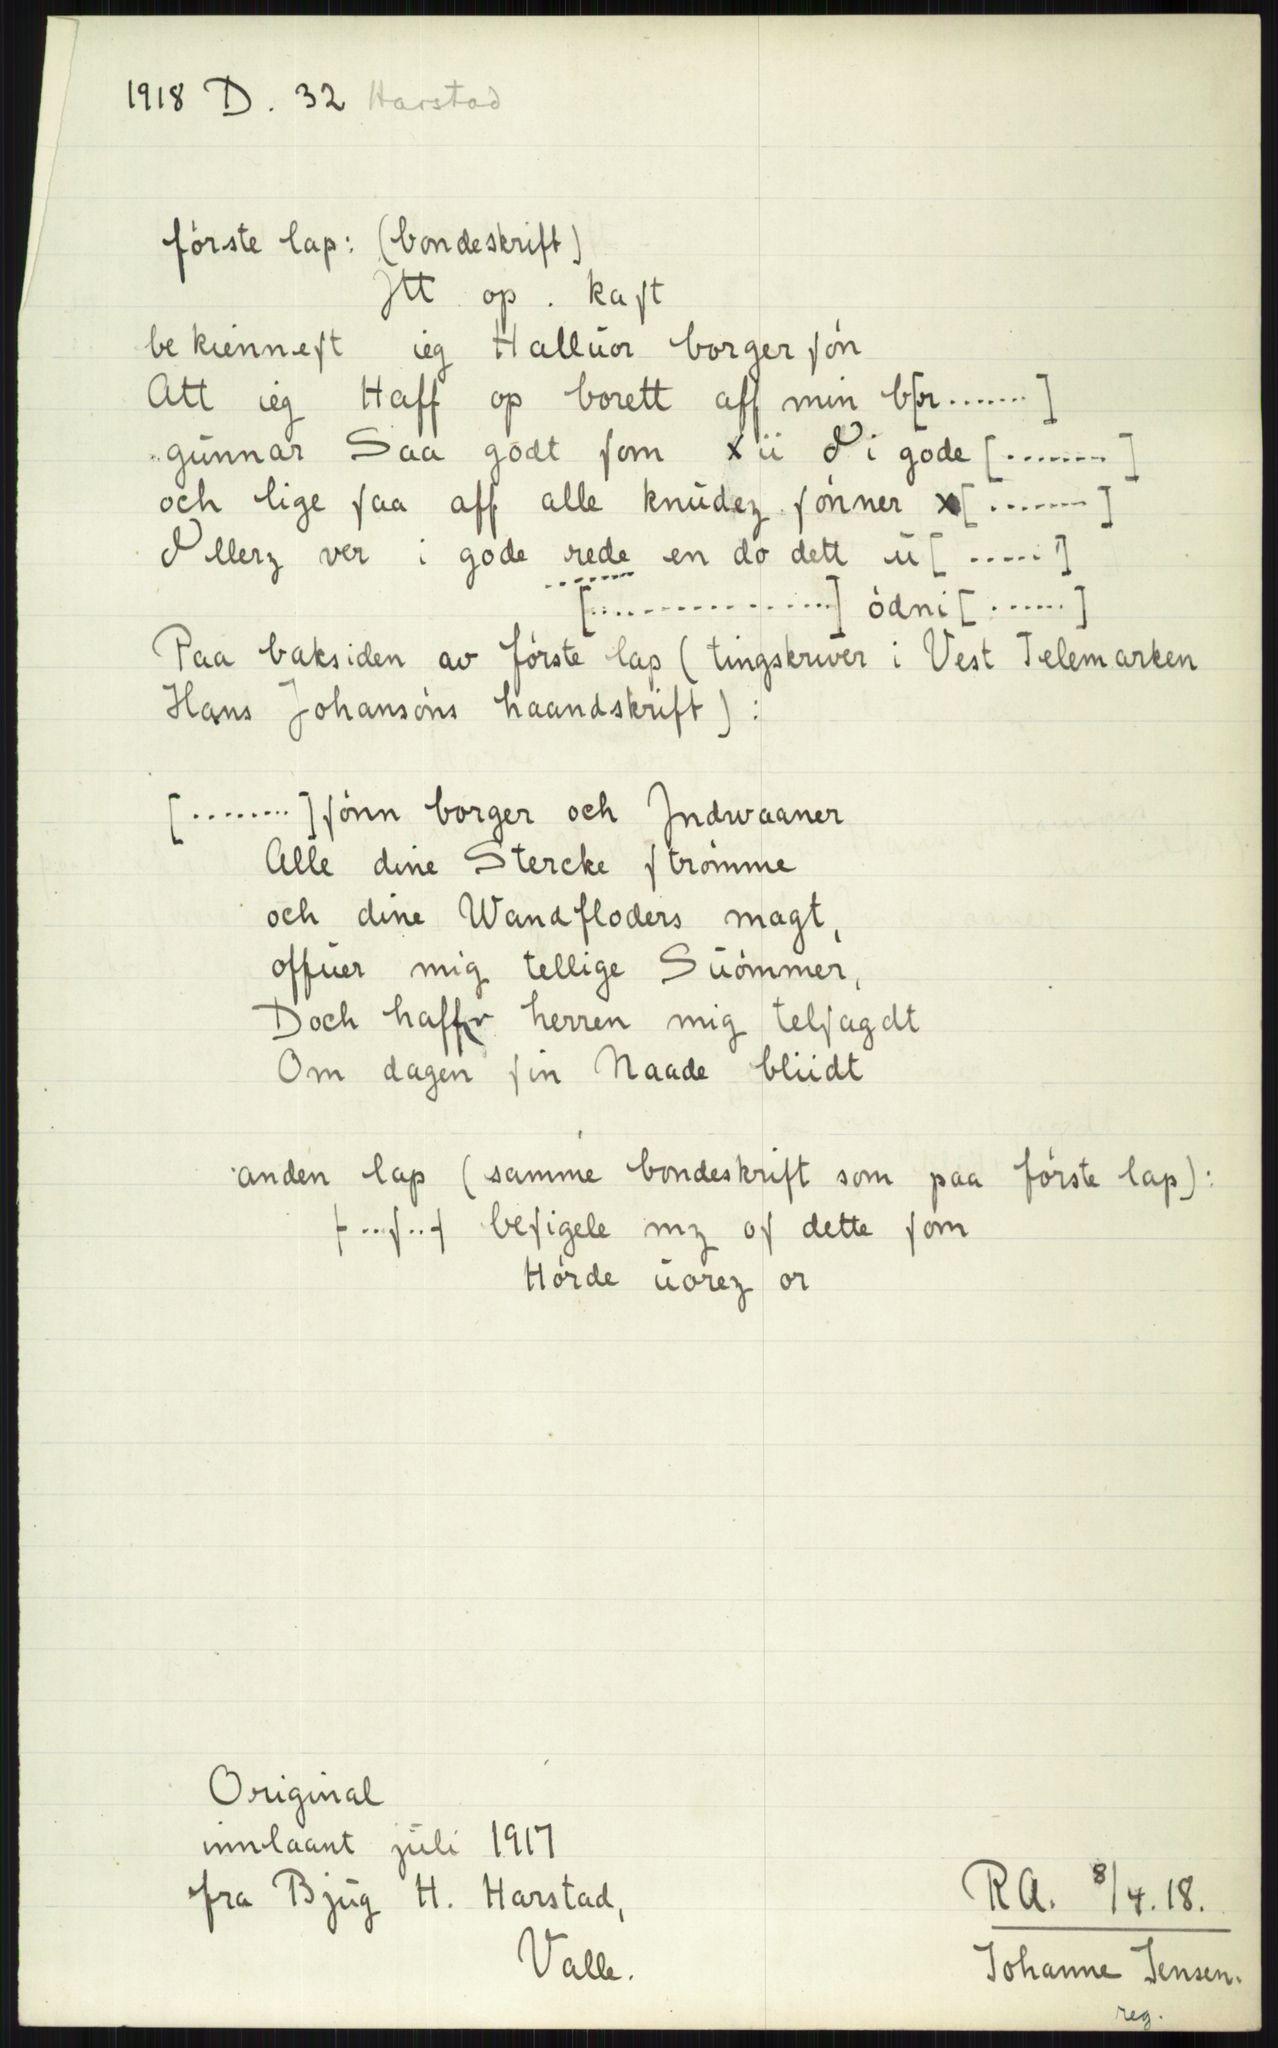 1918 D. 32 Harstad
første lap: (bondeskrift)
Jtt op. kaſt
be kienneſt ieg Hallüor borger ſøn
Att ieg Haff op borett aff min b[or ....... ]
günnar Saa godt ſom x ii d i gode [ ....... ]
och lige ſaa aff alle knüdez ſønner x [ ....... ]
d llerz ver i gode rede en do dett ü [ ..... ]
[ ................ ] ødni [ ...... ]
Paa baksiden av første lap (tingskriver i Vest Telemarken
Hans Johansøns haandskrift) :
[ ........ ] ſønn borger och Jndwaaner
Alle dine Stercke ſtrømme
och dine Wandfloders magt,
offüer mig tellige Süømmer,
Doch haffr herren mig telſagdt
Om dagen ſin Naade bliidt
anden lap (samme bondeskrift som paa første lap) :
[ ..ſ.. ] beſigele mz oſ dette ſom
Hørde üorez or
Original
innlaant jüli 1917
fra Bjüg H. Harstad,
Valle.
R A. 8/4. 18.
Johanne Jensen.
reg.